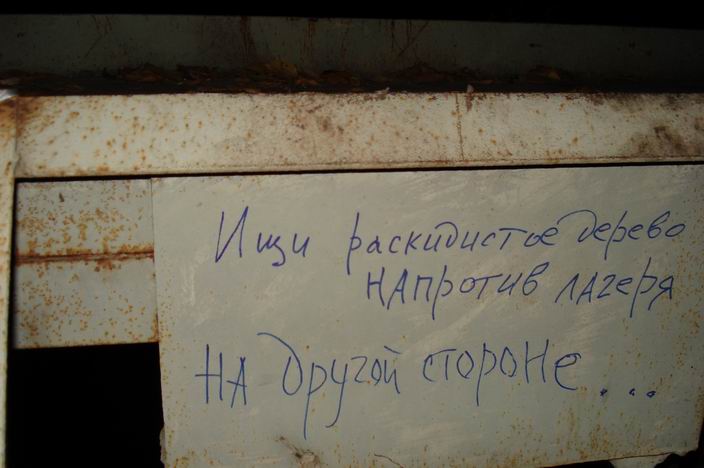 Ищи раскидистое дерево
напротив лагеря
на другой стороне...